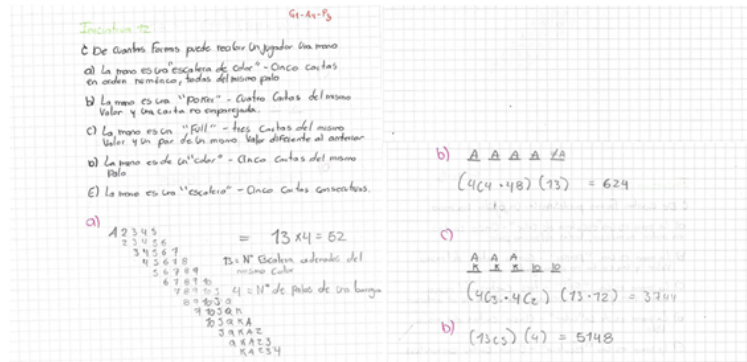 G1-A4-P3
Iniciativa 12
¿ De cuantas formas puede recibir un jugador una mano
a) La mano es una "escalera de color" - Cinco cartas
en orden numérico, todas del mismo palo
b) La mano es una "poker" - Cuatro Cartas del mismo
Valor y una carta no emparejada.
c) La mano es un "Full" - tres Cartas del mismo
Valor y un par de un mismo Valor diferente al anterior
D) La mano es de un "color" - Cinco Cartas del mismo
Palo
E) La mano es una "escalera" - Cinco Cartas consecutivas.
a)
A 2 3 4 5
2 3 4 5 6
3 4 5 6 7
4 5 6 7 8
5 6 7 8 9
6 7 8 9 10
7 8 9 10 J
8 9 10 J Q
9 10 J Q K
10 J Q K A
J Q K A 2
Q K A 2 3
K A 2 3 4
= 13 x 4 = 52
13 = Nº Escalera ordenados del
mismo Color
4 = Nº de palos de una baraja
b) A A A A
(4C4 · 48) (13) = 624
c)
A A A
K K K 10 10
(4C3 · 4C2) (13 · 12) = 3744
b) (13C5) (4) = 5148